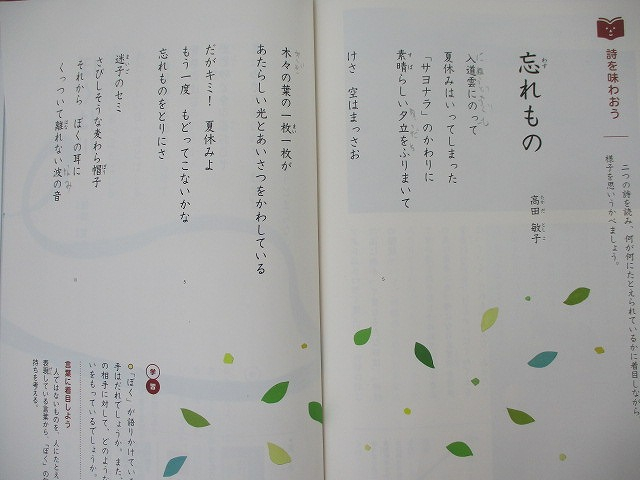 詩を味わおう
二つの詩を読み、何が何にたとえられているかに着目しながら
様子を思いうかべましょう。
忘れもの
高田 敏子
入道雲にのって
夏休みはいってしまった
「サヨナラ」のかわりに
素晴らしい夕立をふりまいて
けさ 空はまっさお
木々の葉の一枚一枚が
あたらしい光とあいさつをかわしている
だがキミ! 夏休みよ
もう一度 もどってこないかな
忘れものをとりにさ
迷子のセミ
さびしそうな麦わら帽子
それから ぼくの耳に
くっついて離れない波の音
学習
「ぼく」が語りかけてい
手はだれでしょうか。また、
の相手に対して、どのような
いをもっているでしょうか。
言葉に着目しよう
人ではないものを、人にたとえ
表現している言葉から、「ぼく」の
持ちを考える。